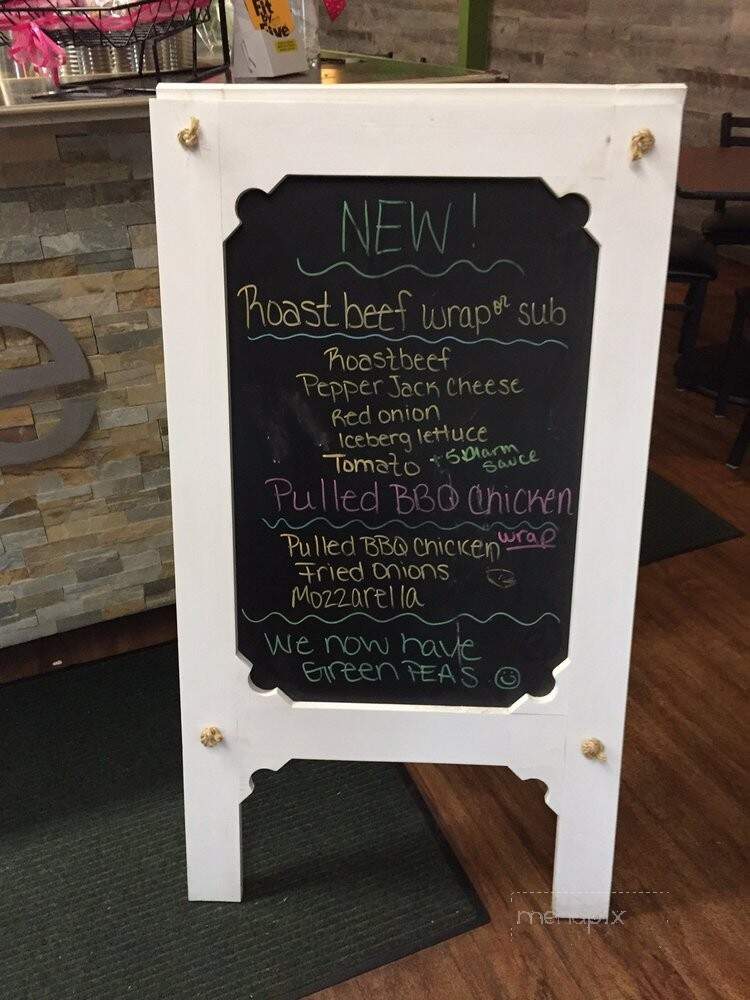 Fit
by
Five
e
NEW!
Roast beef wrap or sub
Roastbeef
Pepper Jack Cheese
Red onion
Iceberg lettuce
Tomato + 5 Alarm sauce
Pulled BBQ Chicken wrap
Pulled BBQ Chicken
Fried Onions
Mozzarella
We now have
Green PEAS
menupix